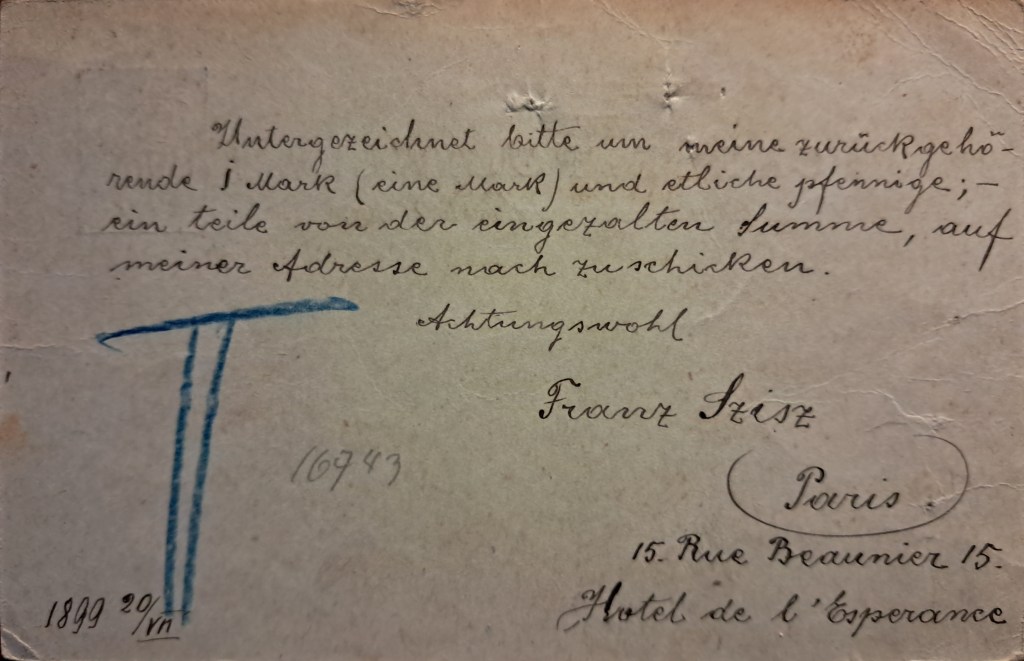 Untergezeichnet bitte um meine zurückgehö-
rende 1 Mark (eine Mark) und etliche pfennige; –
ein teile von der eingezalten Summe, auf
meiner Adresse nach zu schicken.
Achtungswohl
Franz Szisz
16743
Paris.
15. Rue Beaunier 15.
Hotel de l'Esperance
1899 20/VII
T